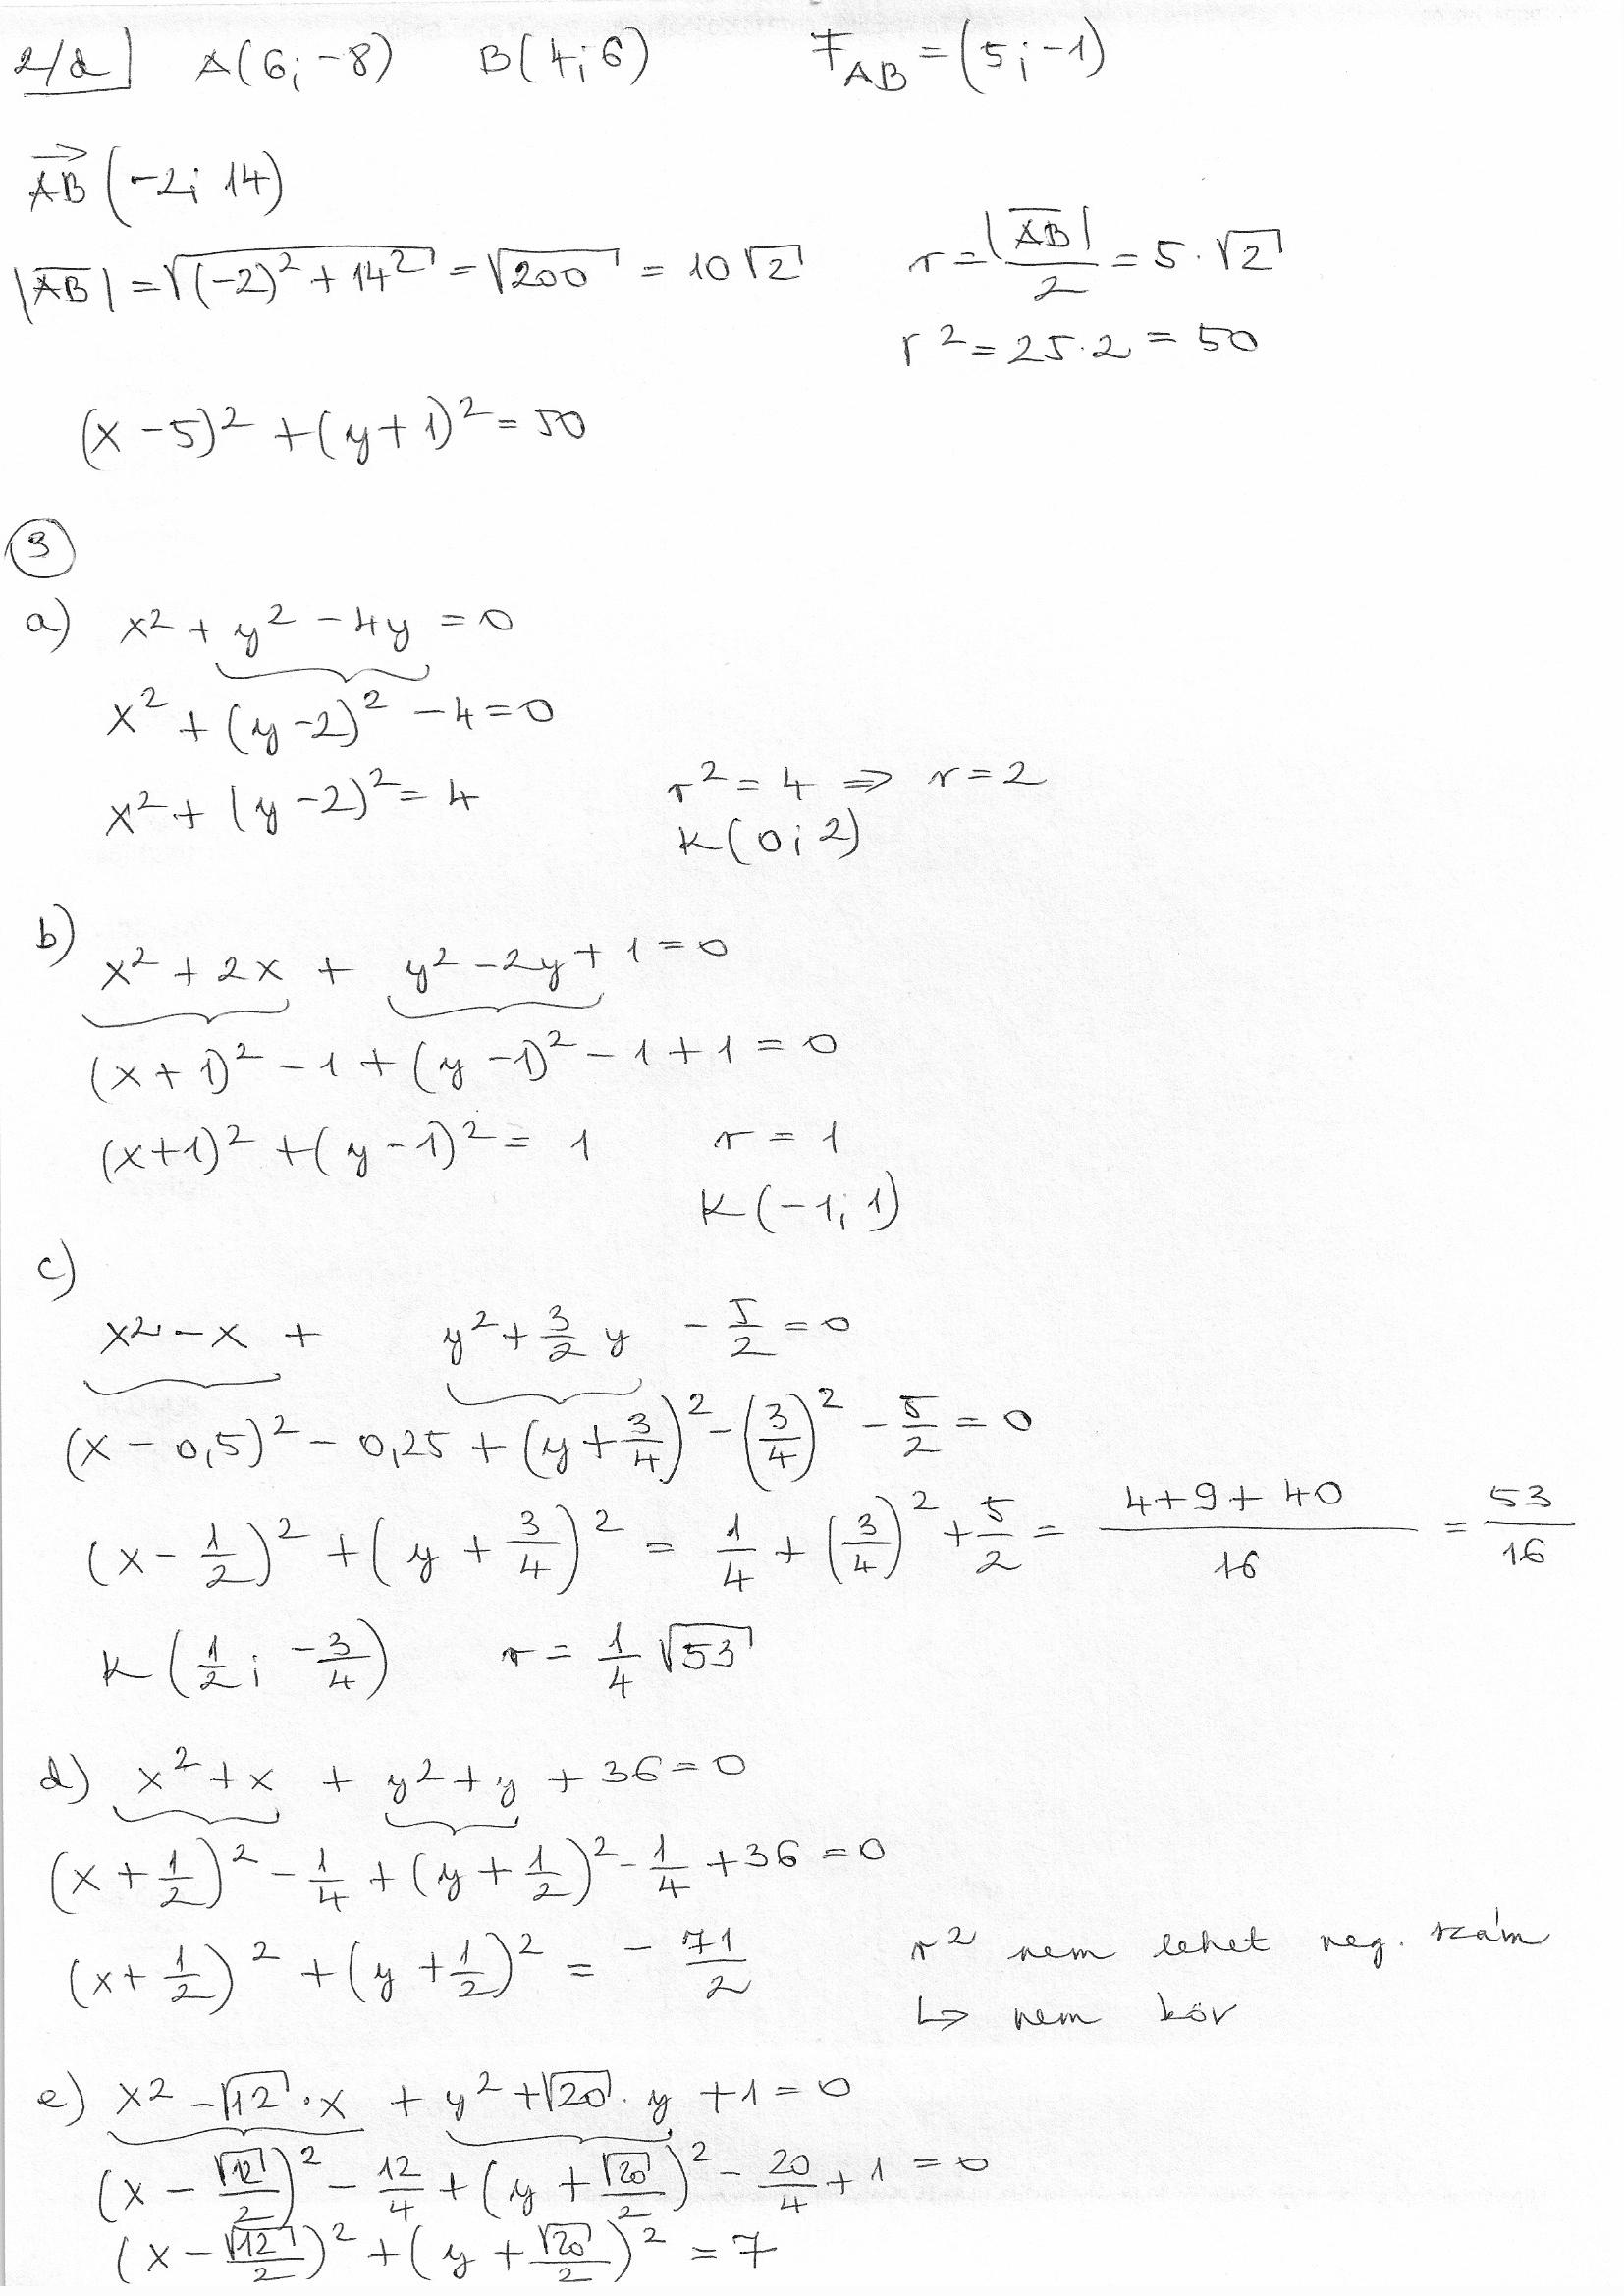 2/d] A(6; -8) B(4; 6) F_AB = (5; -1)
AB→ (-2; 14)
|AB| = √((-2)² + 14²) = √200 = 10√2 r = |AB|/2 = 5·√2
r² = 25·2 = 50
(x - 5)² + (y + 1)² = 50
3
a) x² + y² - 4y = 0
x² + (y - 2)² - 4 = 0
x² + (y - 2)² = 4 r² = 4 ⇒ r = 2
K(0; 2)
b) x² + 2x + y² - 2y + 1 = 0
(x + 1)² - 1 + (y - 1)² - 1 + 1 = 0
(x + 1)² + (y - 1)² = 1 r = 1
K(-1; 1)
c)
x² - x + y² + 3/2 y - 5/2 = 0
(x - 0,5)² - 0,25 + (y + 3/4)² - (3/4)² - 5/2 = 0
(x - 1/2)² + (y + 3/4)² = 1/4 + (3/4)² + 5/2 = (4 + 9 + 40)/16 = 53/16
K(1/2; -3/4) r = 1/4 √53
d) x² + x + y² + y + 36 = 0
(x + 1/2)² - 1/4 + (y + 1/2)² - 1/4 + 36 = 0
(x + 1/2)² + (y + 1/2)² = - 71/2 r² nem lehet neg. szám
↳ nem kör
e) x² - √12·x + y² + √20·y + 1 = 0
(x - √12/2)² - 12/4 + (y + √20/2)² - 20/4 + 1 = 0
(x - √12/2)² + (y + √20/2)² = 7